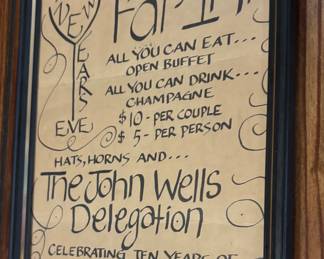 NEW
YEARS
EVE
ALL YOU CAN EAT...
OPEN BUFFET
ALL YOU CAN DRINK...
CHAMPAGNE
$10 - PER COUPLE
$ 5 - PER PERSON
HATS, HORNS AND...
The John Wells
Delegation
CELEBRATING TEN YEARS OF